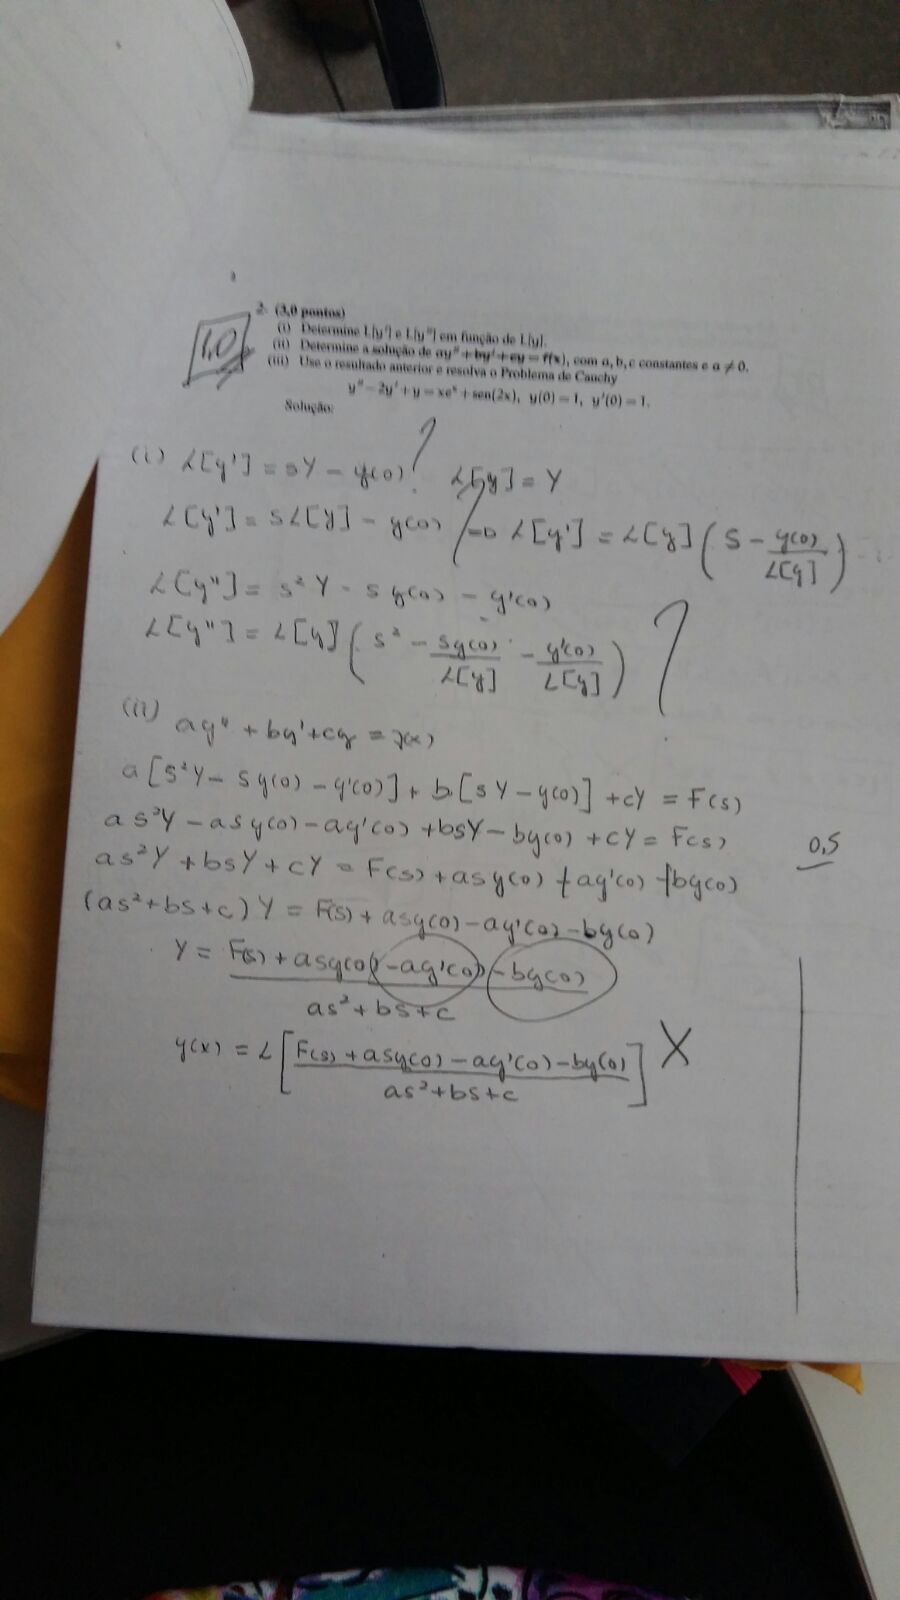 2. (3,0 pontos)
(i) Determine L[y'] e L[y''] em função de L[y].
(ii) Determine a solução de ay'' + by' + cy = f(x), com a, b, c constantes e a ≠ 0.
(iii) Use o resultado anterior e resolva o Problema de Cauchy
y'' − 2y' + y = xeˣ + sen(2x), y(0) = 1, y'(0) = 1.
Solução:
1,0
(i) L[y'] = sY − y(0) ? L[y] = Y
L[y'] = sL[y] − y(0) ⇒ L[y'] = L[y](s − y(0)/L[y])
L[y''] = s²Y − sy(0) − y'(0)
L[y''] = L[y](s² − sy(0)/L[y] − y'(0)/L[y]) ?
(ii) ay'' + by' + cy = f(x)
a[s²Y − sy(0) − y'(0)] + b[sY − y(0)] + cY = F(s)
as²Y − asy(0) − ay'(0) + bsY − by(0) + cY = F(s)
0,5
as²Y + bsY + cY = F(s) + asy(0) + ay'(0) + by(0)
(as² + bs + c)Y = F(s) + asy(0) − ay'(0) − by(0)
Y = F(s) + asy(0) − ay'(0) − by(0)
as² + bs + c
y(x) = L[F(s) + asy(0) − ay'(0) − by(0)] X
as² + bs + c